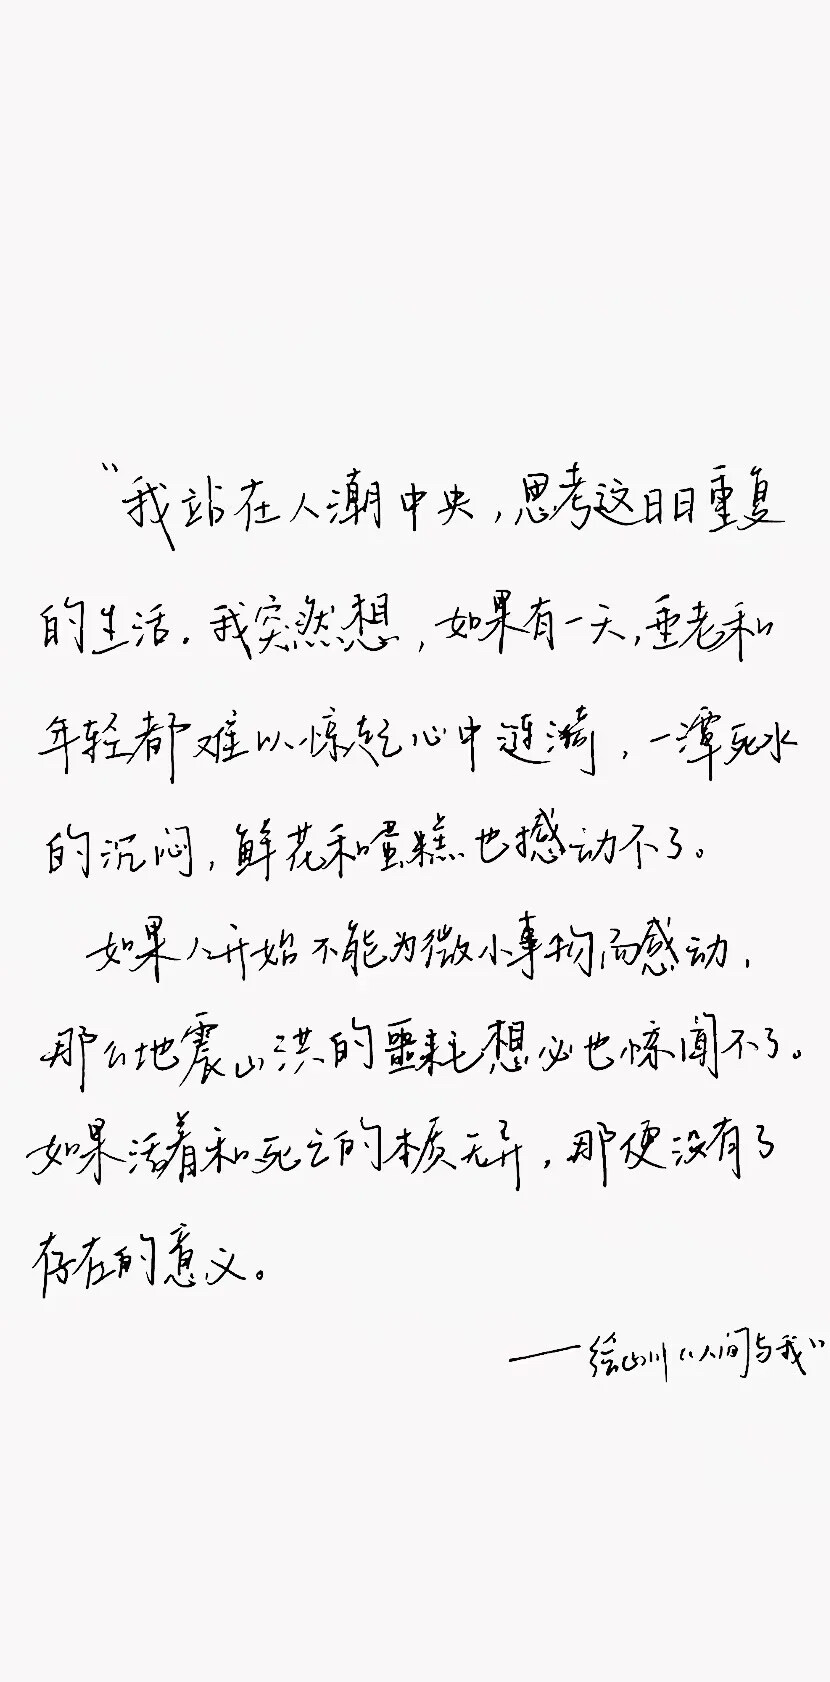 “我站在人潮中央,思考这日日重复
的生活。我突然想,如果有一天,垂老和
年轻都难以惊起心中涟漪,一潭死水
的沉闷,鲜花和蛋糕也撼动不了。
如果人开始不能为微小事物而感动,
那么地震山洪的噩耗想必也惊闻不了。
如果活着和死亡的本质无异,那便没有了
存在的意义。
——绘山川“人间与我”